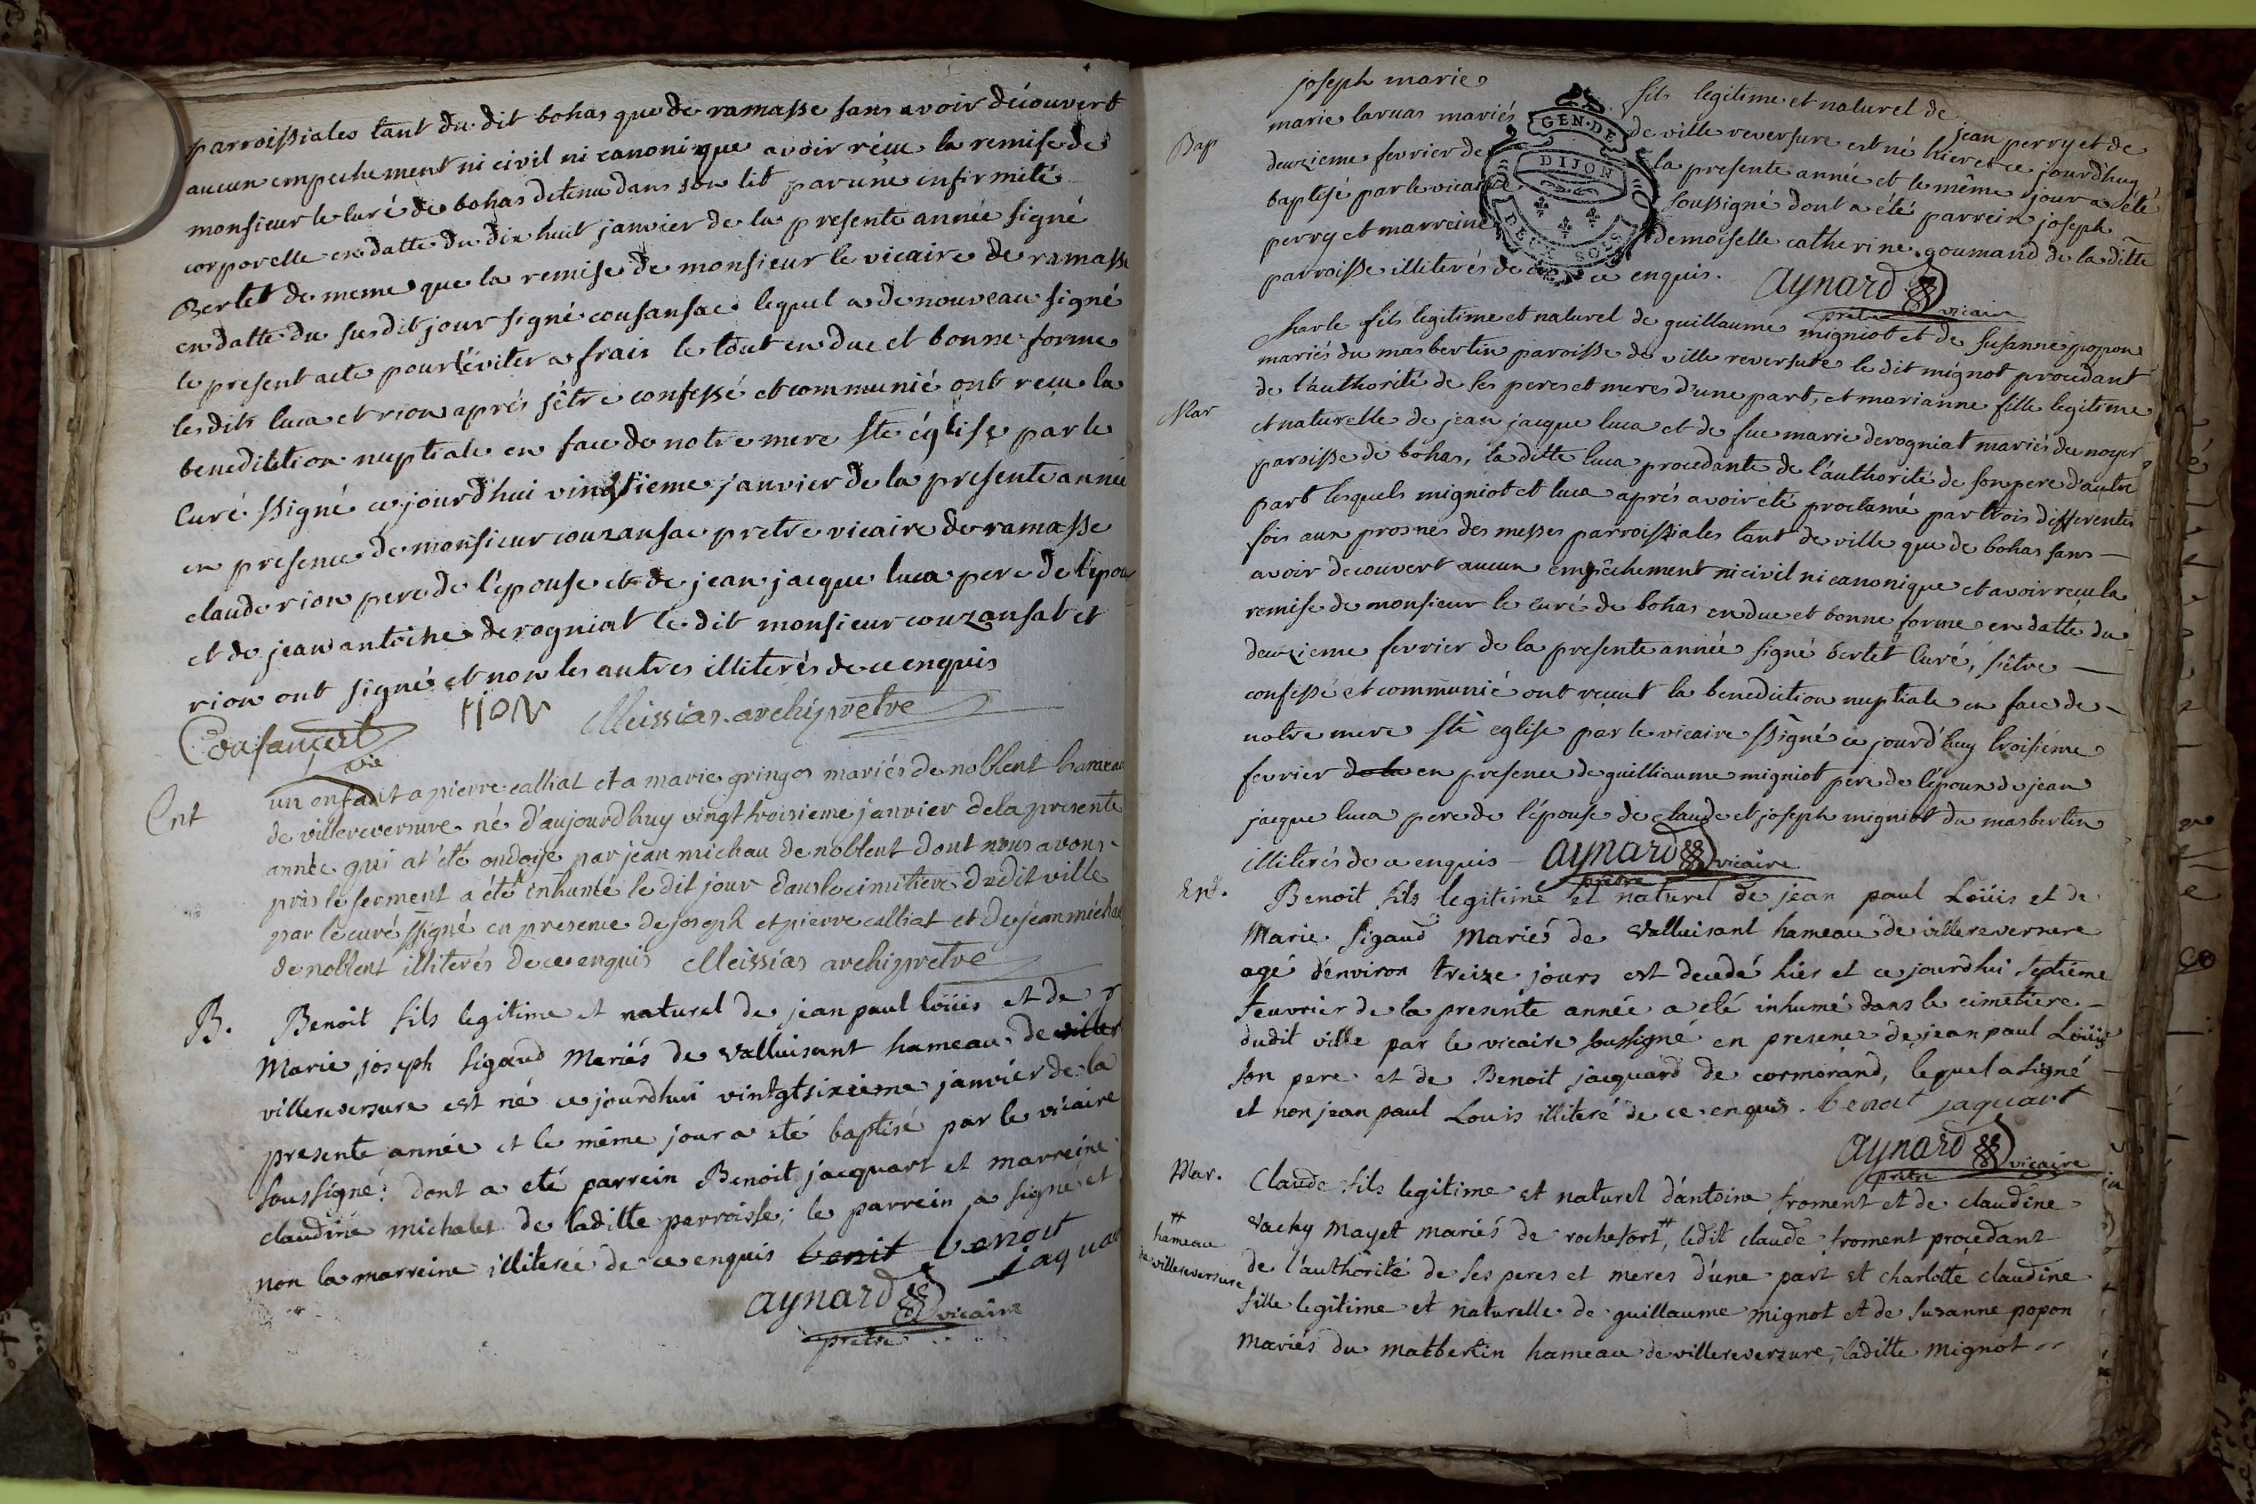 parroissiales tant du dit bohas que de ramasse sans avoir découvert
aucun empechement ni civil ni canonique avoir réçu la remise de
monsieur le curé de bohas detenu dans son lit par une infirmité
corporelle en datte du dix huit janvier de la presente année signé
Bertet de meme que la remise de monsieur le vicaire de ramasse
en datte du susdit jour signé cousansac lequel a de nouveau signé
le present acte pour éviter a frais le tout en due et bonne forme
lesdits luca et rion aprés s'être confessé et communié ont reçu la
benediction nuptiale en face de notre mere ste église par le
Curé ssigné ce jourd'hui vingtieme janvier de la presente année
en presence de monsieur couzansac pretre vicaire de ramasse
claude rion pere de l'épouse et de jean jacque luca pere de l'époux
et de jean antoine derogniat le dit monsieur couzansat et
rion ont signé et non les autres illiterés de ce enquis
rion Meissias archipretre
vic
Ent
un enfant a pierre calliat et a marie gringos mariés de noblent hameau
de villereversure né d'aujourdhuy vingt troisieme janvier de la presente
année qui at été ondoije par jean michau de noblent dont nous avons
pris le serment a été inhumé le dit jour dans le cimitiere du dit ville
par le curé ssigné en presence de joseph et pierre calliat et de jean michau
de noblent illiterés de ce enquis Meissias archipretre
B.
Benoit fils legitime et naturel de jean paul loüis et de
Marie joseph sigaud Mariés de valluisant hameau de viller
villereversure est né ce jourdhui vintgtsixieme janvier de la
presente année et le même jour a eté baptisé par le vicaire
soussigné: dont a eté parrein Benoit jacquart et marreine
claudine michalet de laditte parroisse; le parrein a signé et
non la marreine illiterée de ce enquis benit benoit
jaquart
aynard vicaire
prêtre
joseph marie fils legitime et naturel de jean perry et de
Bap
marie laruas mariés de ville reversure est né hier et ce jourd'huy
deuxieme fevrier de la presente année et le même jour a été
baptisé par le vicaire soussigné dont a été parrein joseph
perry et marreine demoiselle catherine goumand de la ditte
parroisse illiterés de ce enquis. aynard
prêtre vicaire
GEN. DE
DIJON
DEUX SOLS
Charle fils legitime et naturel de guillaume migniot et de susanne popon
mariés du masbertin paroisse de ville reversure le dit mignot procedant
de l'authorité de ses peres et meres d'une part, et marianne fille legitime
Mar
et naturelle de jean jacque luca et de fue marie derogniat mariés du noyer
paroisse de bohas, la ditte luca procedante de l'authorité de son pere d'autre
part lesquels migniot et luca aprés avoir été proclamé par trois differentes
fois aux prosnes des messes parroissiales tant de ville que de bohas sans
avoir decouvert aucun empêchement ni civil ni canonique et avoir recu la
remise de monsieur le curé de bohas en due et bonne forme en datte du
deuxieme fevrier de la presente année signé bertet Curé, s'être
confessé et communié ont reçut la benediction nuptiale en face de
notre mere ste eglise par le vicaire ssigné ce jourd'huy troisiéme
fevrier de la en presence de guilliaume migniot pere de l'époux de jean
jacque luca pere de l'épouse de claude et joseph migniot du masbertin
illiterés de ce enquis aynard vicaire
prêtre
Ent.
Benoit fils legitime et naturel de jean paul Loüis et de
Marie sigaud Mariés de valluisant hameau de villereversure
agé d'environ treize jours est decedé hier et ce jourdhui septieme
feuvrier de la presente année a eté inhumé dans le cimetiere
dudit ville par le vicaire soussigné en presence de jean paul Loüis
son pere et de Benoit jacquard de cormorand, lequel a signé
et non jean paul Louis illiteré de ce enquis. benoit jaquart
aynard vicaire
prêtre
Mar.
Claude fils legitime et naturel d'antoine froment et de claudine
vachy Mayet mariés de rochefort #, ledit claude froment procedant
# hameau
de villereversure
de l'authorité de ses peres et meres d'une part et charlotte claudine
fille legitime et naturelle de guillaume mignot et de susanne popon
Mariés du matbertin hameau de villereversure, laditte Mignot